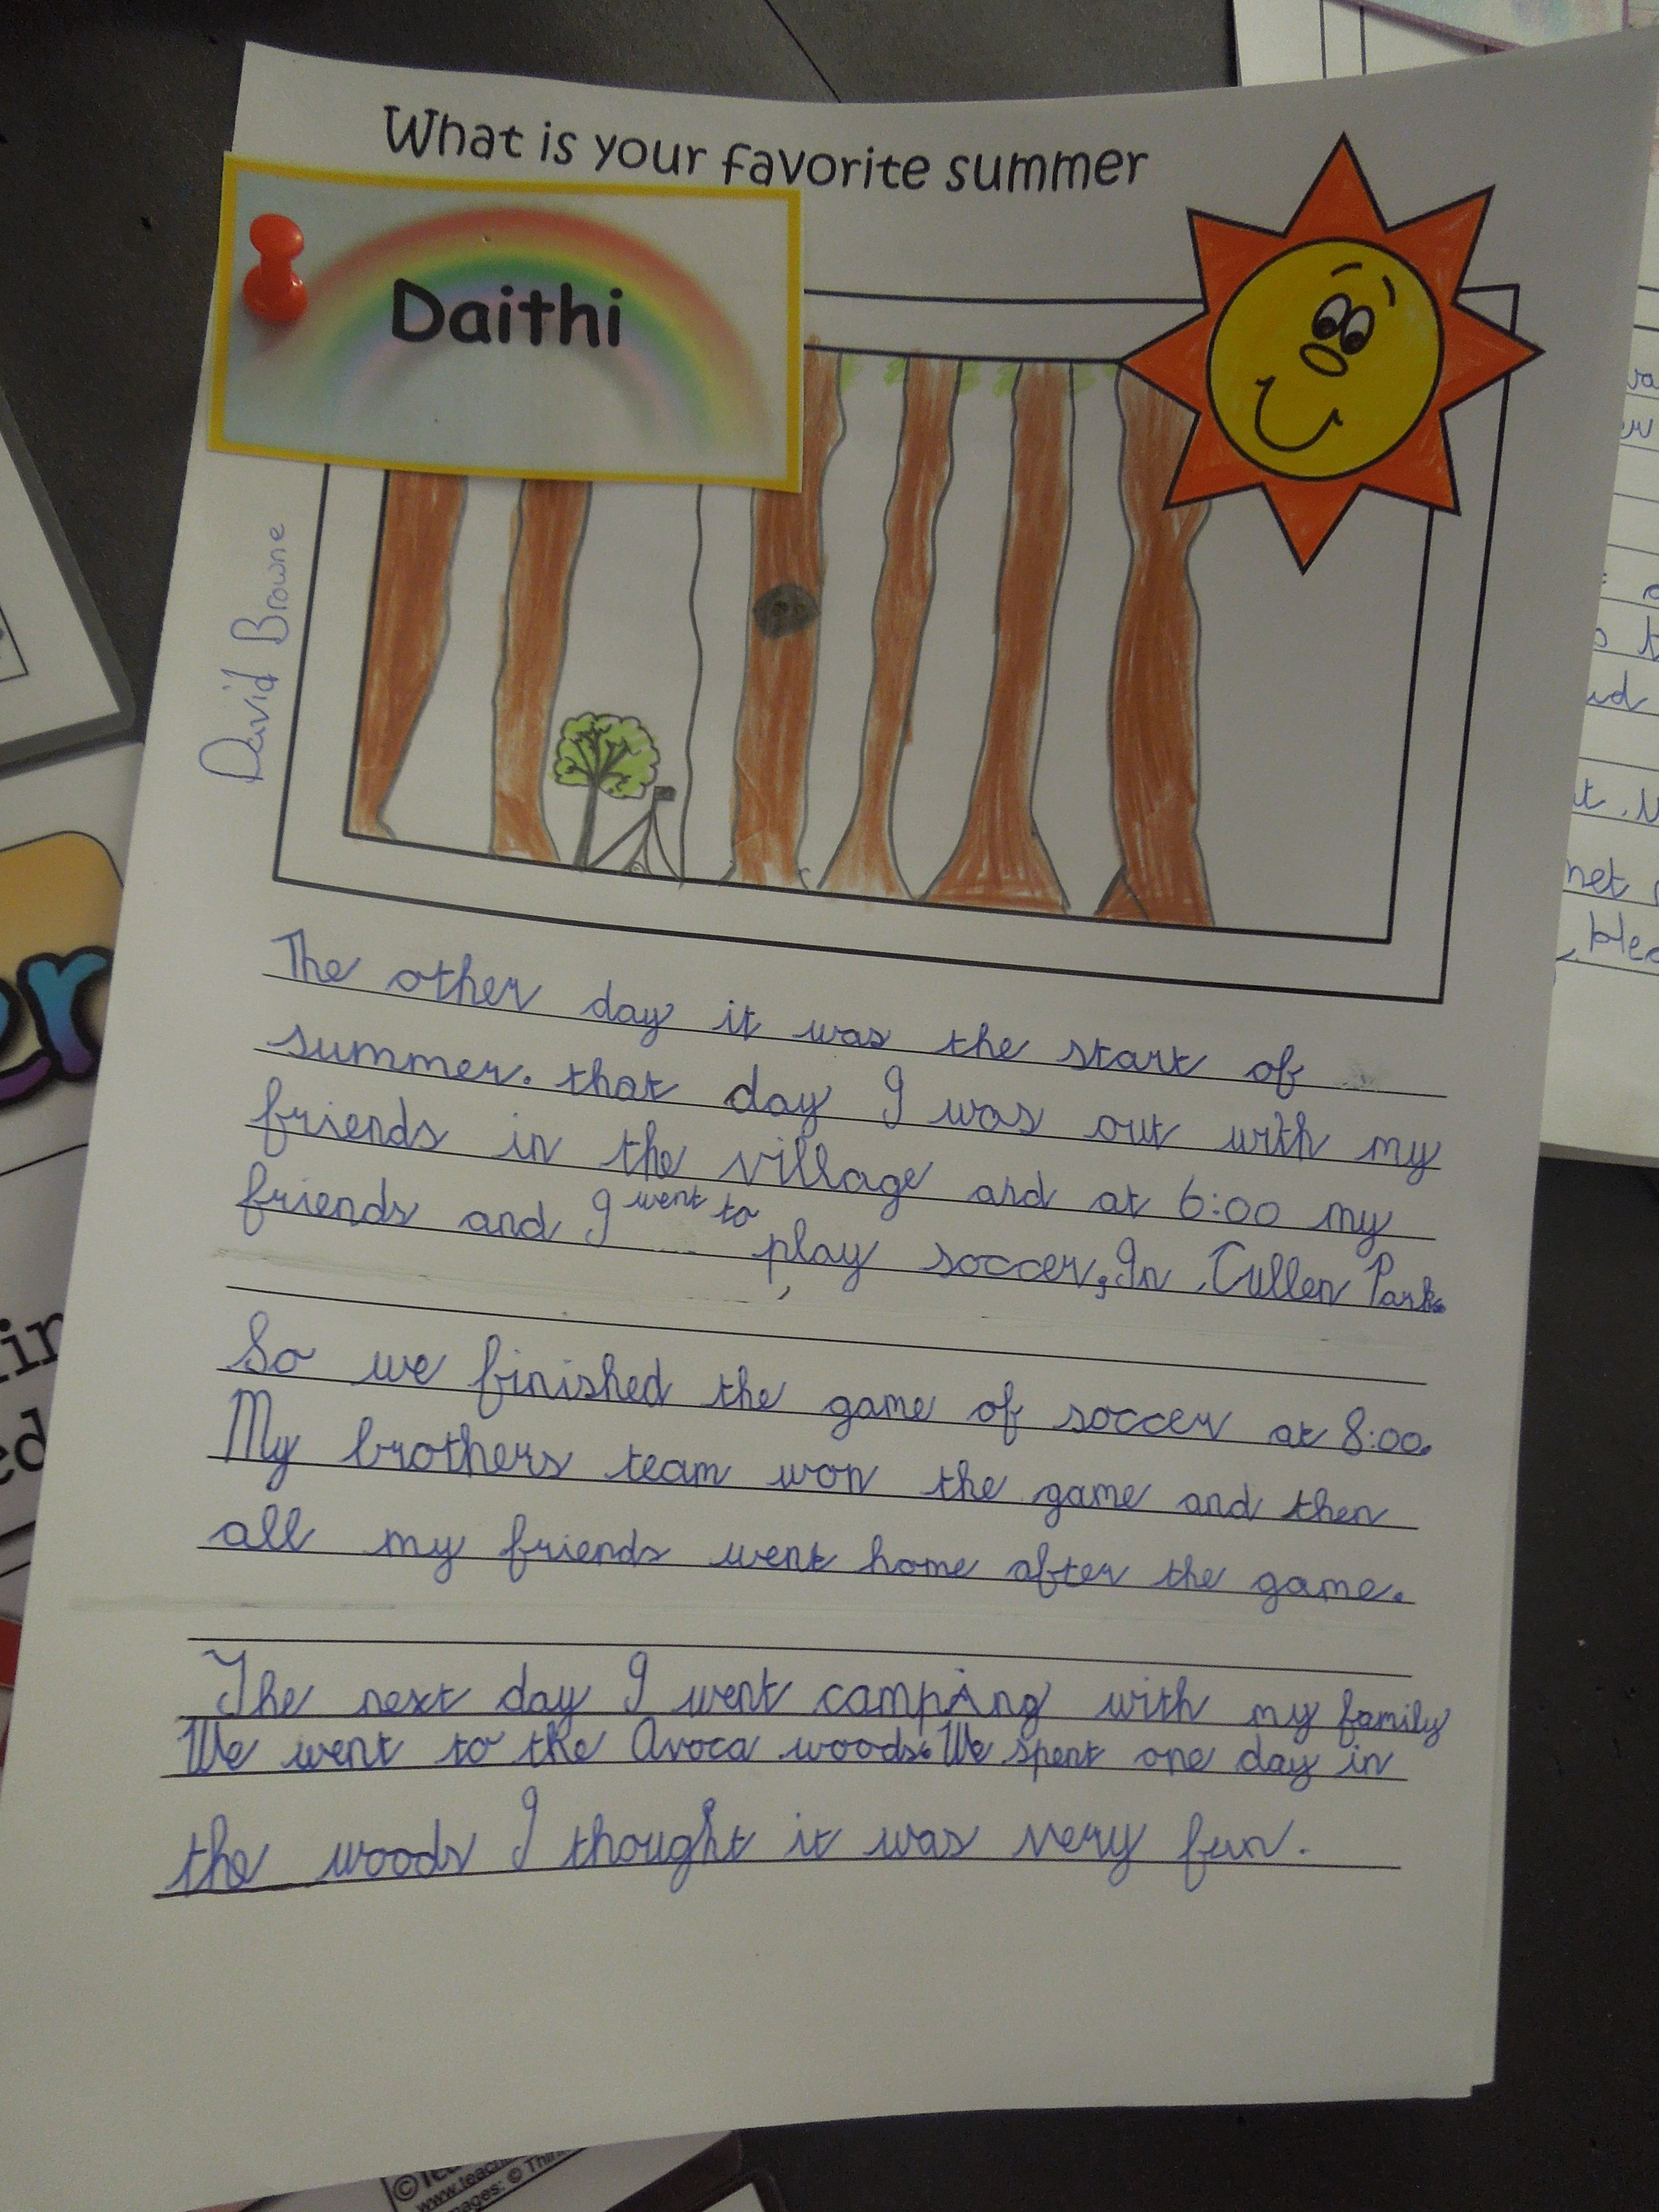 What is your favorite summer
Daithi
David Browne
The other day it was the start of
summer. that day I was out with my
friends in the village and at 6:00 my
friends and I went to play soccer, In Cullen Park.
So we finished the game of soccer at 8:00.
My brothers team won the game and then
all my friends went home after the game.
The next day I went camping with my family
We went to the Avoca woods. We spent one day in
the woods I thought it was very fun.